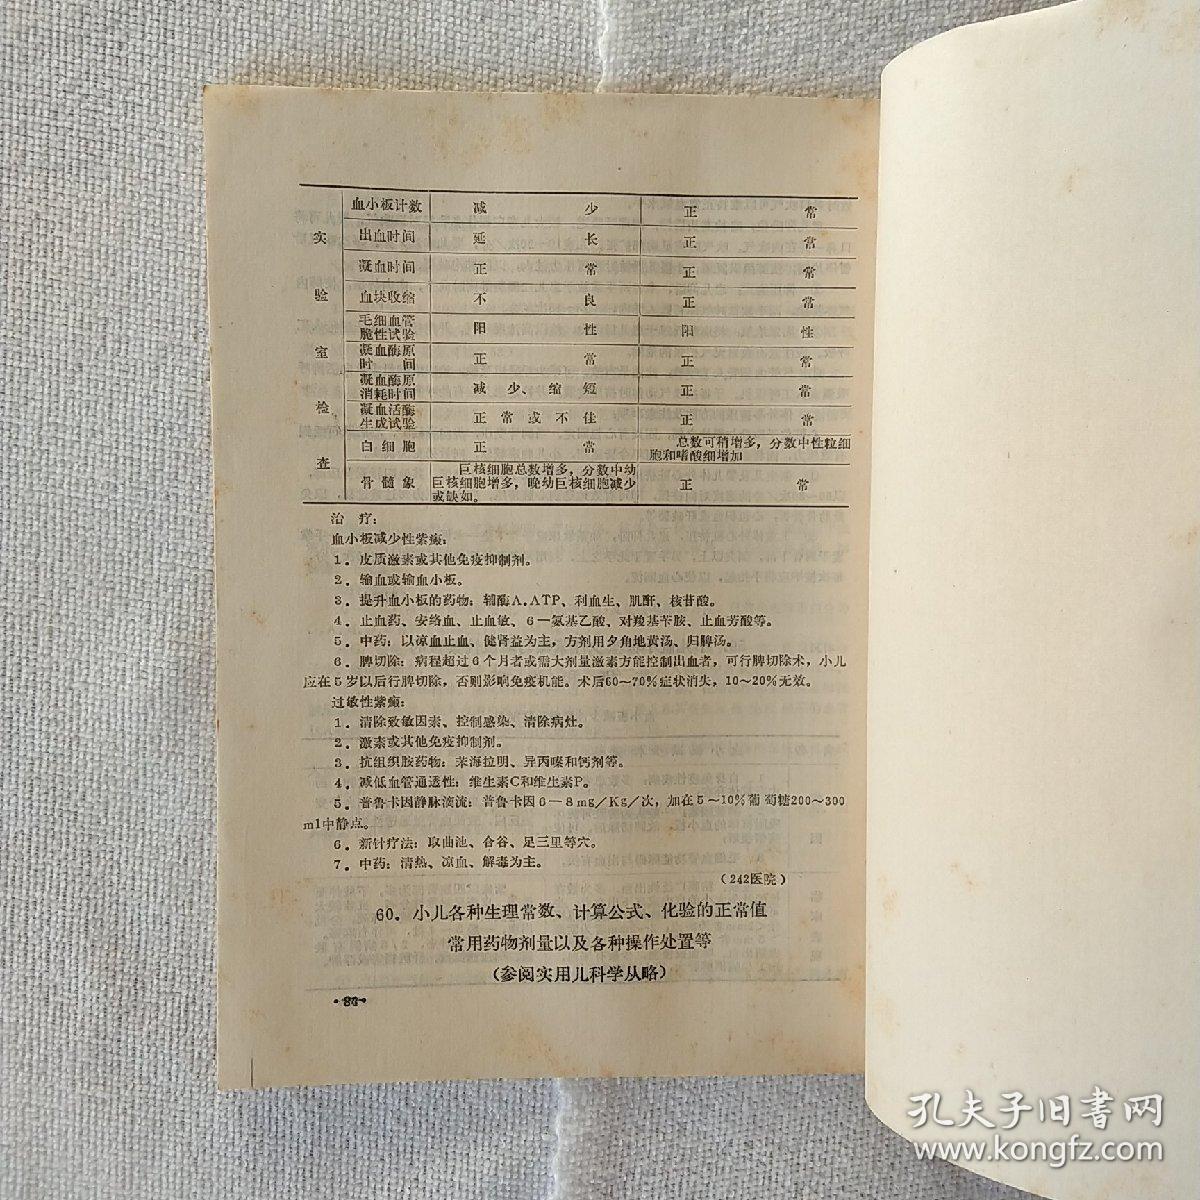 血小板计数 减少 正常
实 出血时间 延长 正常
凝血时间 正常 正常
验 血块收缩 不良 正常
毛细血管
脆性试验 阳性 阳性
室 凝血酶原
时间 正常 正常
凝血酶原
消耗时间 减少、缩短 正常
检 凝血活酶
生成试验 正常或不佳 正常
白细胞 正常 总数可稍增多，分数中性粒细
胞和嗜酸细增加
查
骨髓象 巨核细胞总数增多，分数中幼
巨核细胞增多，晚幼巨核细胞减少
或缺如。 正常
治疗：
血小板减少性紫癜：
1．皮质激素或其他免疫抑制剂。
2．输血或输血小板。
3．提升血小板的药物：辅酶A．ATP、利血生、肌酐、核苷酸。
4．止血药、安络血、止血敏、6－氨基乙酸、对羧基苄胺、止血芳酸等。
5．中药：以凉血止血、健肾益为主，方剂用夕角地黄汤、归脾汤。
6．脾切除：病程超过6个月者或需大剂量激素方能控制出血者，可行脾切除术，小儿
应在5岁以后行脾切除，否则影响免疫机能。术后60～70%症状消失，10～20%无效。
过敏性紫癜：
1．清除致敏因素、控制感染、清除病灶。
2．激素或其他免疫抑制剂。
3．抗组织胺药物：苯海拉明、异丙嗪和钙剂等。
4．减低血管通透性：维生素C和维生素P。
5．普鲁卡因静脉滴流：普鲁卡因6－8mg／Kg／次，加在5～10%葡萄糖200～300
ml中静点。
6．新针疗法：取曲池、合谷、足三里等穴。
7．中药：清热、凉血、解毒为主。
（242医院）
60．小儿各种生理常数、计算公式、化验的正常值
常用药物剂量以及各种操作处置等
（参阅实用儿科学从略）
孔夫子旧书网
www.kongfz.com